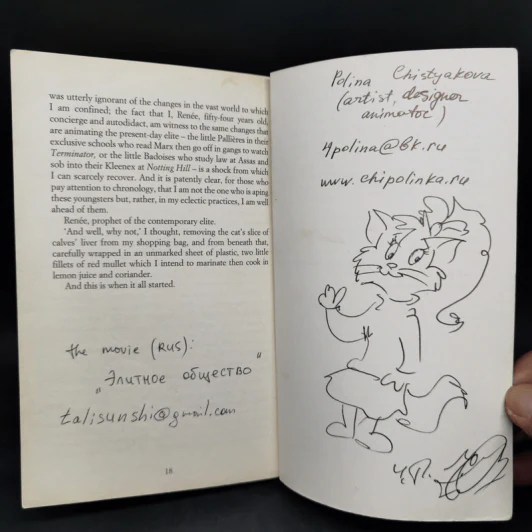 was utterly ignorant of the changes in the vast world to which
I am confined; the fact that I, Renée, fifty-four years old,
concierge and autodidact, am witness to the same changes that
are animating the present-day elite – the little Pallières in their
exclusive schools who read Marx then go off in gangs to watch
Terminator, or the little Badoises who study law at Assas and
sob into their Kleenex at Notting Hill – is a shock from which
I can scarcely recover. And it is patently clear, for those who
pay attention to chronology, that I am not the one who is aping
these youngsters but, rather, in my eclectic practices, I am well
ahead of them.
Renée, prophet of the contemporary elite.
‘And well, why not,’ I thought, removing the cat’s slice of
calves’ liver from my shopping bag, and from beneath that,
carefully wrapped in an unmarked sheet of plastic, two little
fillets of red mullet which I intend to marinate then cook in
lemon juice and coriander.
And this is when it all started.
the movie (RUS):
"Элитное общество"
talisunshi@gmail.com
18
Polina Chistyakova
(artist, designer
animator)
4polina@bk.ru
www.chipolinka.ru
Ч.П.